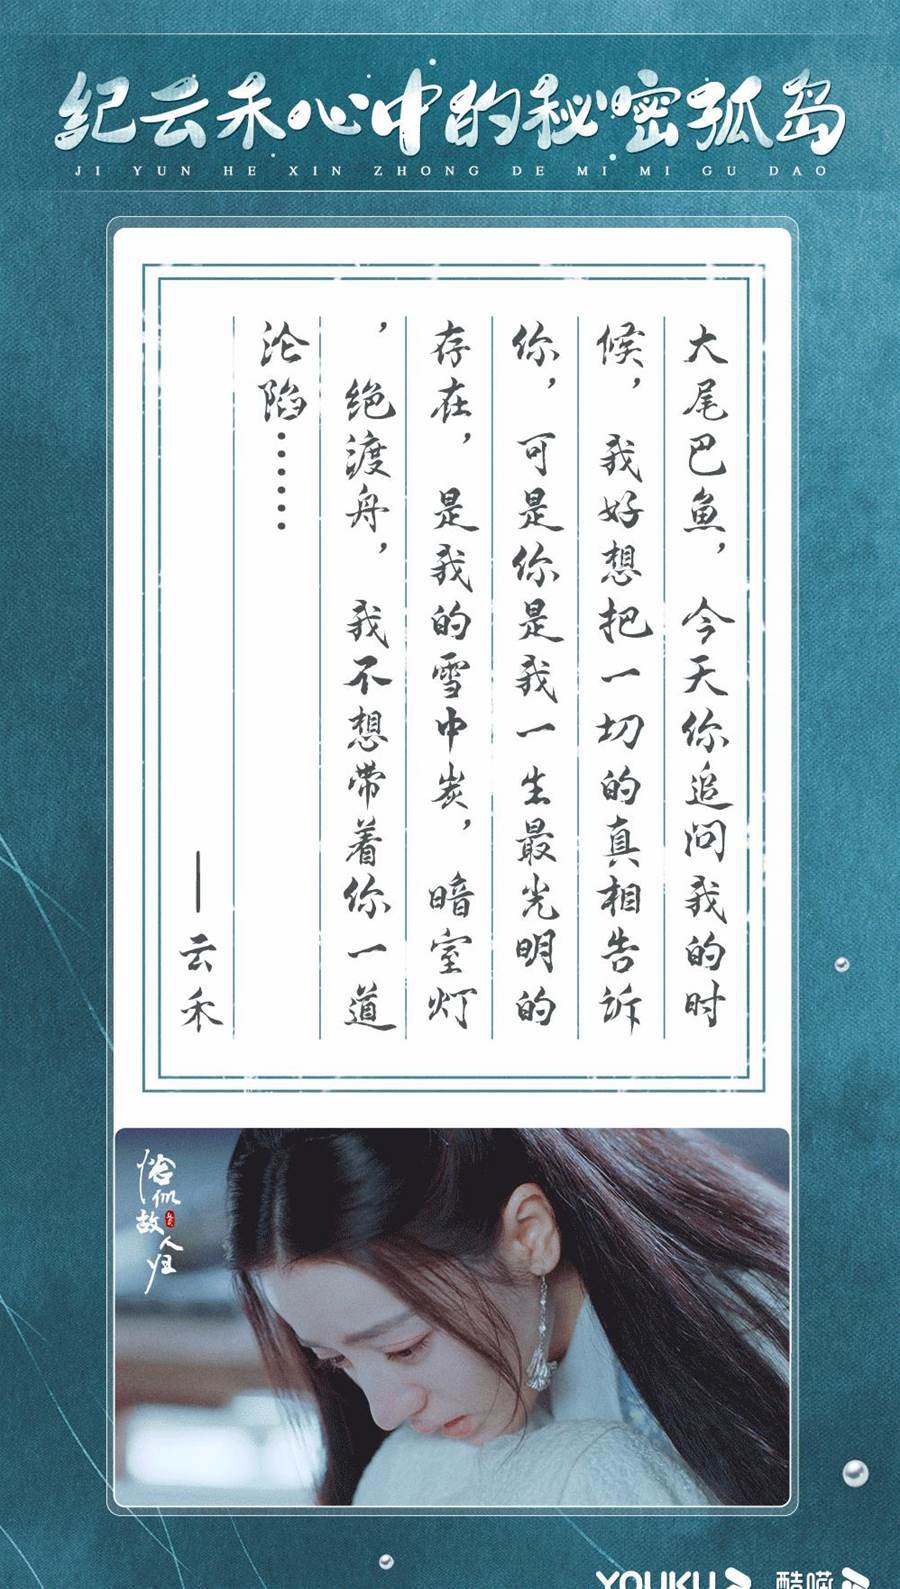 纪云禾心中的秘密孤岛
JI YUN HE XIN ZHONG DE MI MI GU DAO
大尾巴鱼，今天你追问我的时
候，我好想把一切的真相告诉
你，可是你是我一生最光明的
存在，是我的雪中炭，暗室灯
，绝渡舟，我不想带着你一道
沦陷……
——云禾
恰似故人归
YOUKU
酷喵